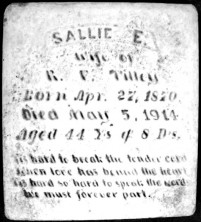 SALLIE E.
Wife of
R. F. Tilley
Born Apr. 27, 1870
Died May 5, 1914
Aged 44 Ys & 8 Ds.
Tis hard to break the tender cord
When love has bound the heart
Tis hard so hard to speak the word
We must forever part.